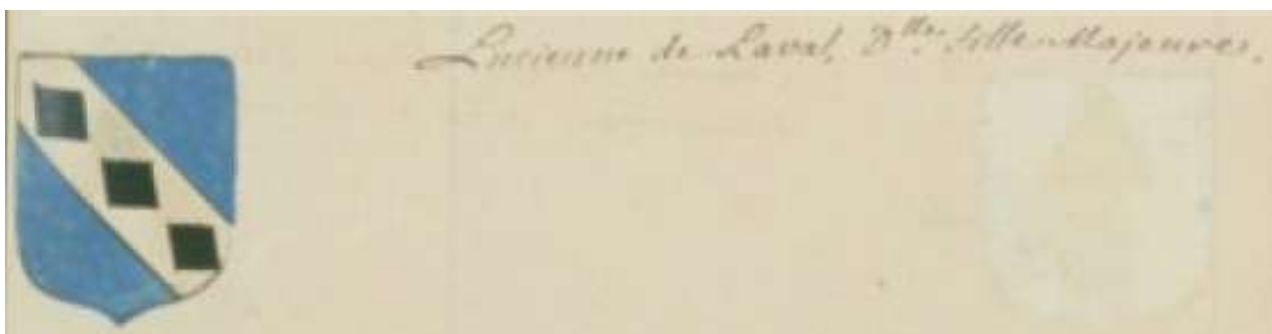 Lucienne de Laval, D.lle fille Majeure.